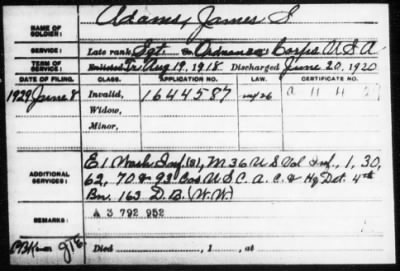 NAME OF SOLDIER: Adams, James S
SERVICE: Late rank, Sgt Ordnance Corps U S A
TERM OF SERVICE: Enlisted Tr Aug 19, 1918 Discharged June 20, 1920
DATE OF FILING. CLASS. APPLICATION NO. LAW. CERTIFICATE NO.
1929 June 8 Invalid, 1644587
Widow,
Minor,
ADDITIONAL SERVICES: E 1 Wash. Inf. M 36 U S Vol Inf, 1, 30,
62, 70 & 93 Cos U S C. A. C. & Hq Det 4th
Bn. 163 D. B. (W.W.)
REMARKS: A 3 792 952
Died , 1 , at